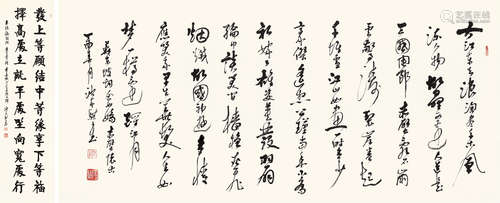 大江东去浪淘尽千古风
流人物故垒西边人道是
三国周郎赤壁乱石崩
云惊涛裂岸卷起
千堆雪江山如画一时多少
豪杰遥想公瑾当年小乔
初嫁了雄姿英发羽扇
纶巾谈笑间樯橹灰飞
烟灭故国神游多情
应笑我早生华发人生如
梦一樽还酹江月
苏东坡词念奴娇赤壁怀古
發上等願結中等緣享下等福
擇高處立就平處坐向寬處行